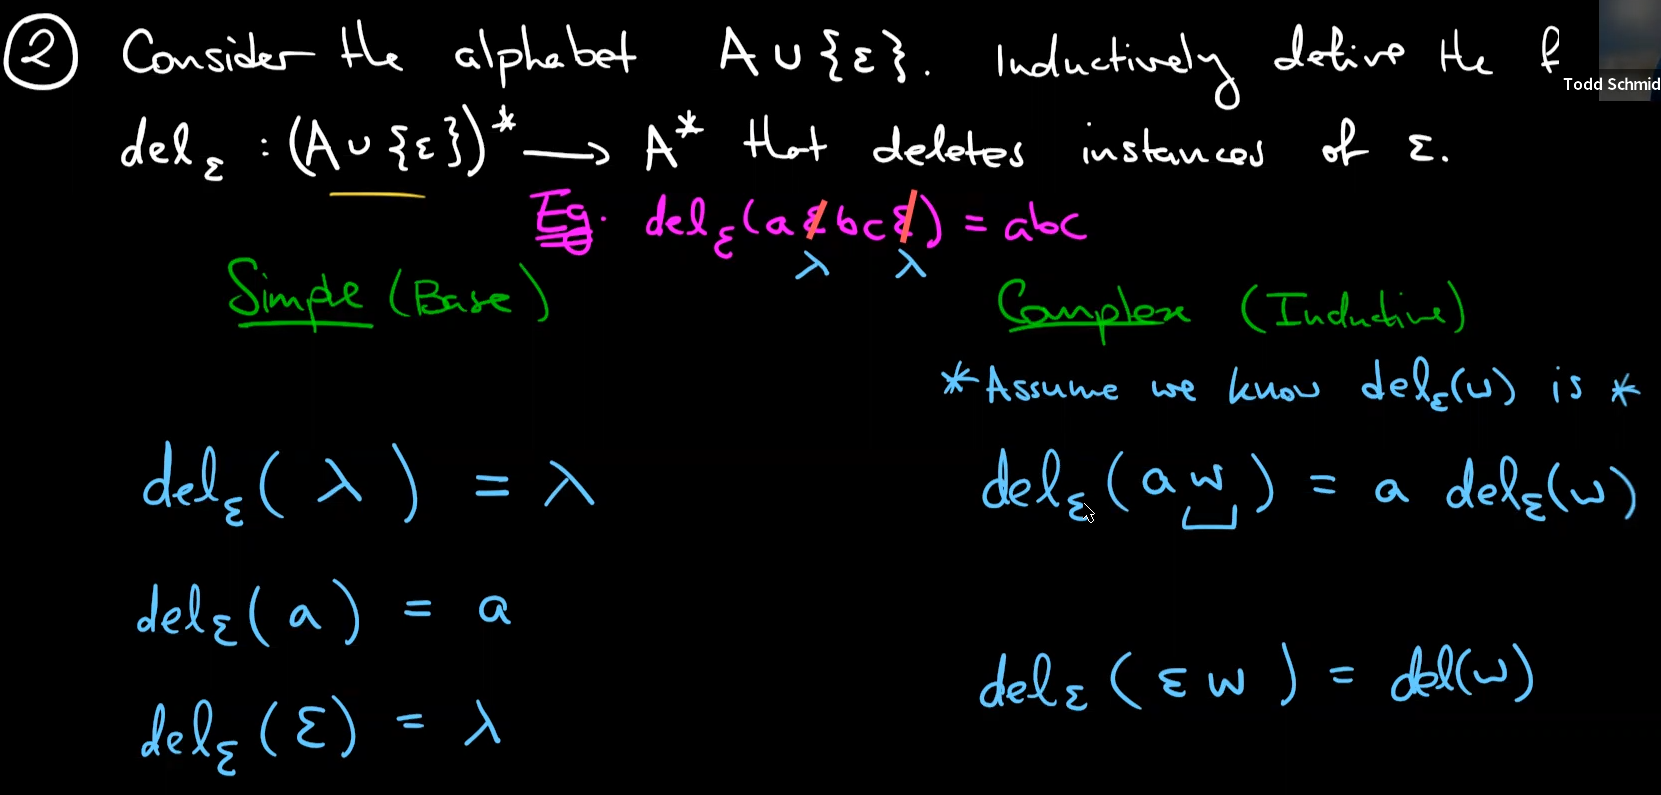 ② Consider the alphabet A ∪ {ε}. Inductively define the f
Todd Schmid
del_ε : (A ∪ {ε})* → A* that deletes instances of ε.
Eg. del_ε(aεbcε) = abc
λ λ
Simple (Base)
Complex (Inductive)
* Assume we know del_ε(w) is *
del_ε(λ) = λ
del_ε(aw) = a del_ε(w)
del_ε(a) = a
del_ε(εw) = del(w)
del_ε(ε) = λ